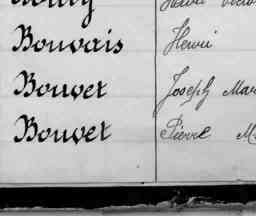 Bouvais Henri
Bouvet Joseph Mar
Bouvet Pierre M